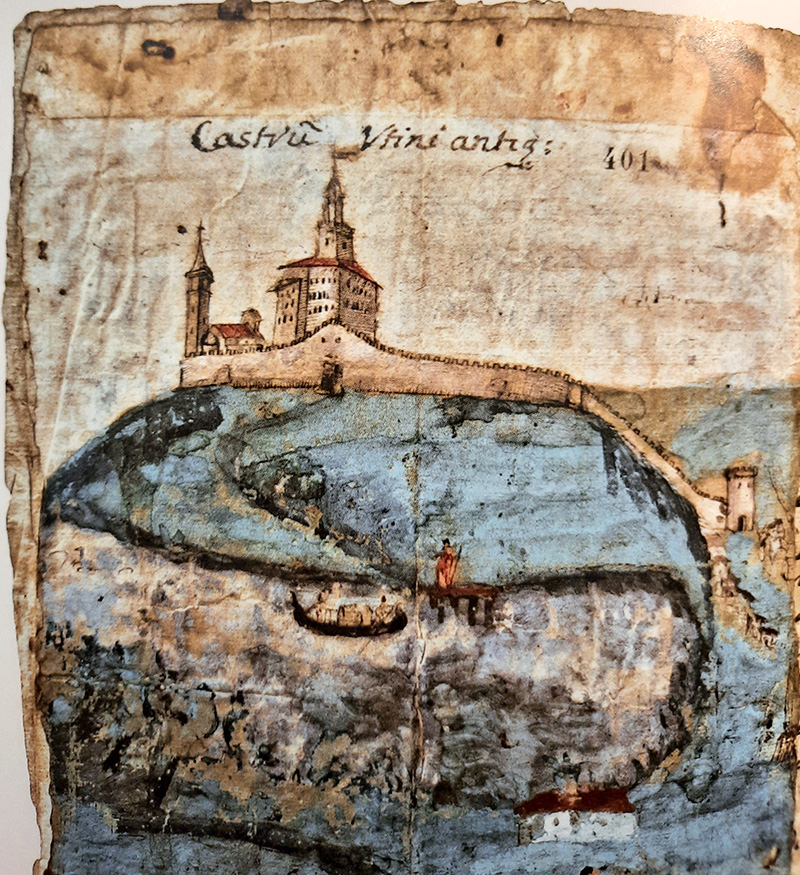 Castrũ Vtini antiq: 401